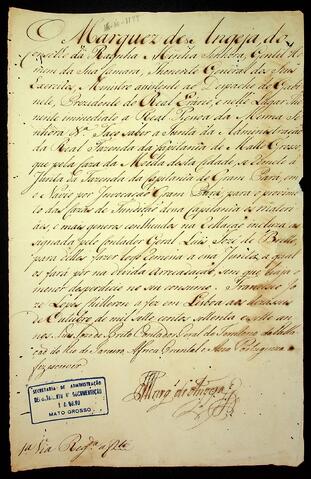 Marquez de Angeja do
Conselho da Raynha Minha Senhora, Gentil Ho
mem da Sua Camara, Thenente General dos Seus
Exercitos, Ministro asistente ao Despacho do Gabi
nete, Prezidente do Real Erario, e nelle Lugar The
nente immediato á Real Pessoa da Mesma
Senhora &ª. Faço saber á Junta da Administração
da Real Fazenda da Capitania de Matto Groso,
que pela Caza da Moeda desta cidade, se remete á
Junta da Fazenda da Capitania do Gram Pará, em
o Navio por Invocação Gram Pará, para o provimto
das Cazas de Fundição dessa Capitania os materi
áes, e mais generos conthiudos na Rellação incluza as
signada pelo Contador Geral Luis José de Brito,
para delles fazer logo remessa a essa Junta; a qual
os fará pôr na devida arrecadação, sem que haja o
menor desperdicio no seu consumo. Francisco Jo
ze Lopes Guilleron a fez em Lisboa aos
de Outubro de mil sete centos setenta e sete an
nos. Luis José de Brito Contador Geral do Territorio da Rella
ção do Rio de Janeiro, Africa Oriental, e Asia Portugueza a
fez escrever.
SECRETARIA DE ADMINISTRAÇÃO
MATO GROSSO
1ª Via